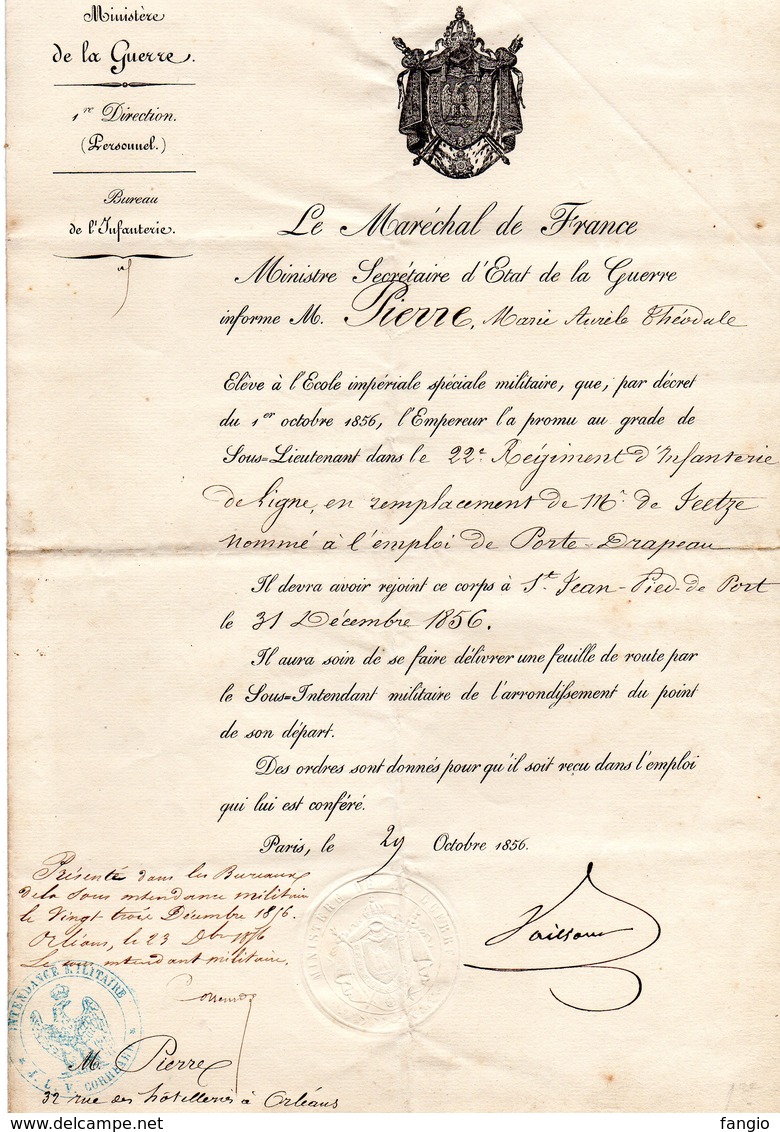 Ministère
de la Guerre.
1re Direction.
(Personnel.)
Bureau
de l'Infanterie.
Le Maréchal de France
Ministre Secrétaire d'Etat de la Guerre
informe M. Pierre, Marie Aurèle Théodule
Elève à l'Ecole impériale spéciale militaire, que, par décret
du 1er octobre 1856, l'Empereur l'a promu au grade de
Sous=Lieutenant dans le 22e Régiment d'Infanterie
de Ligne, en remplacement de Mr. de Jeetze
nommé à l'emploi de Porte-Drapeau
Il devra avoir rejoint ce corps à St. Jean-Pied-de Port
le 31 Décembre 1856.
Il aura soin de se faire délivrer une feuille de route par
le Sous=Intendant militaire de l'arrondissement du point
de son départ.
Des ordres sont donnés pour qu'il soit reçu dans l'emploi
qui lui est conféré.
Paris, le 29 Octobre 1856.
Présenté dans les Bureaux
de la sous intendance militaire
le Vingt trois Décembre 1856.
Orléans, le 23 Dbre 1856
Le sous intendant militaire.
Vaillant
MINISTERE DE LA GUERRE
INTENDANCE MILITAIRE
M. Pierre
32 rue des hôtelleries à Orléans
www.delcampe.net
fangio